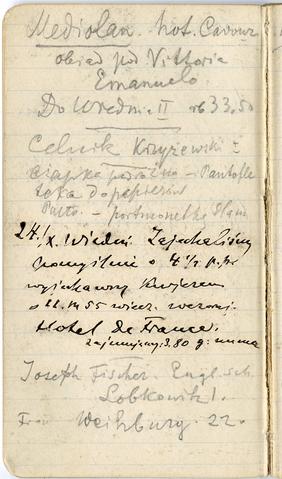 Mediolan. hot. Cavour
obiad pod Vittoria
Emanuelo.
Do Wiednia II rb 33.50
Celnik Krzyżewski
czapka podróżna – Pantofle
teka do papierów
– portmonetka
24/X. Wiedeń. Zajechaliśmy
pomyślnie o 4½ p.p.
wyjechawszy
o 11 m 55 wiecz. wczoraj.
Hotel de France.
zajmujemy 80
Joseph Fischer. Engl.
Lobkowitz 1.
Weihburg. 22.